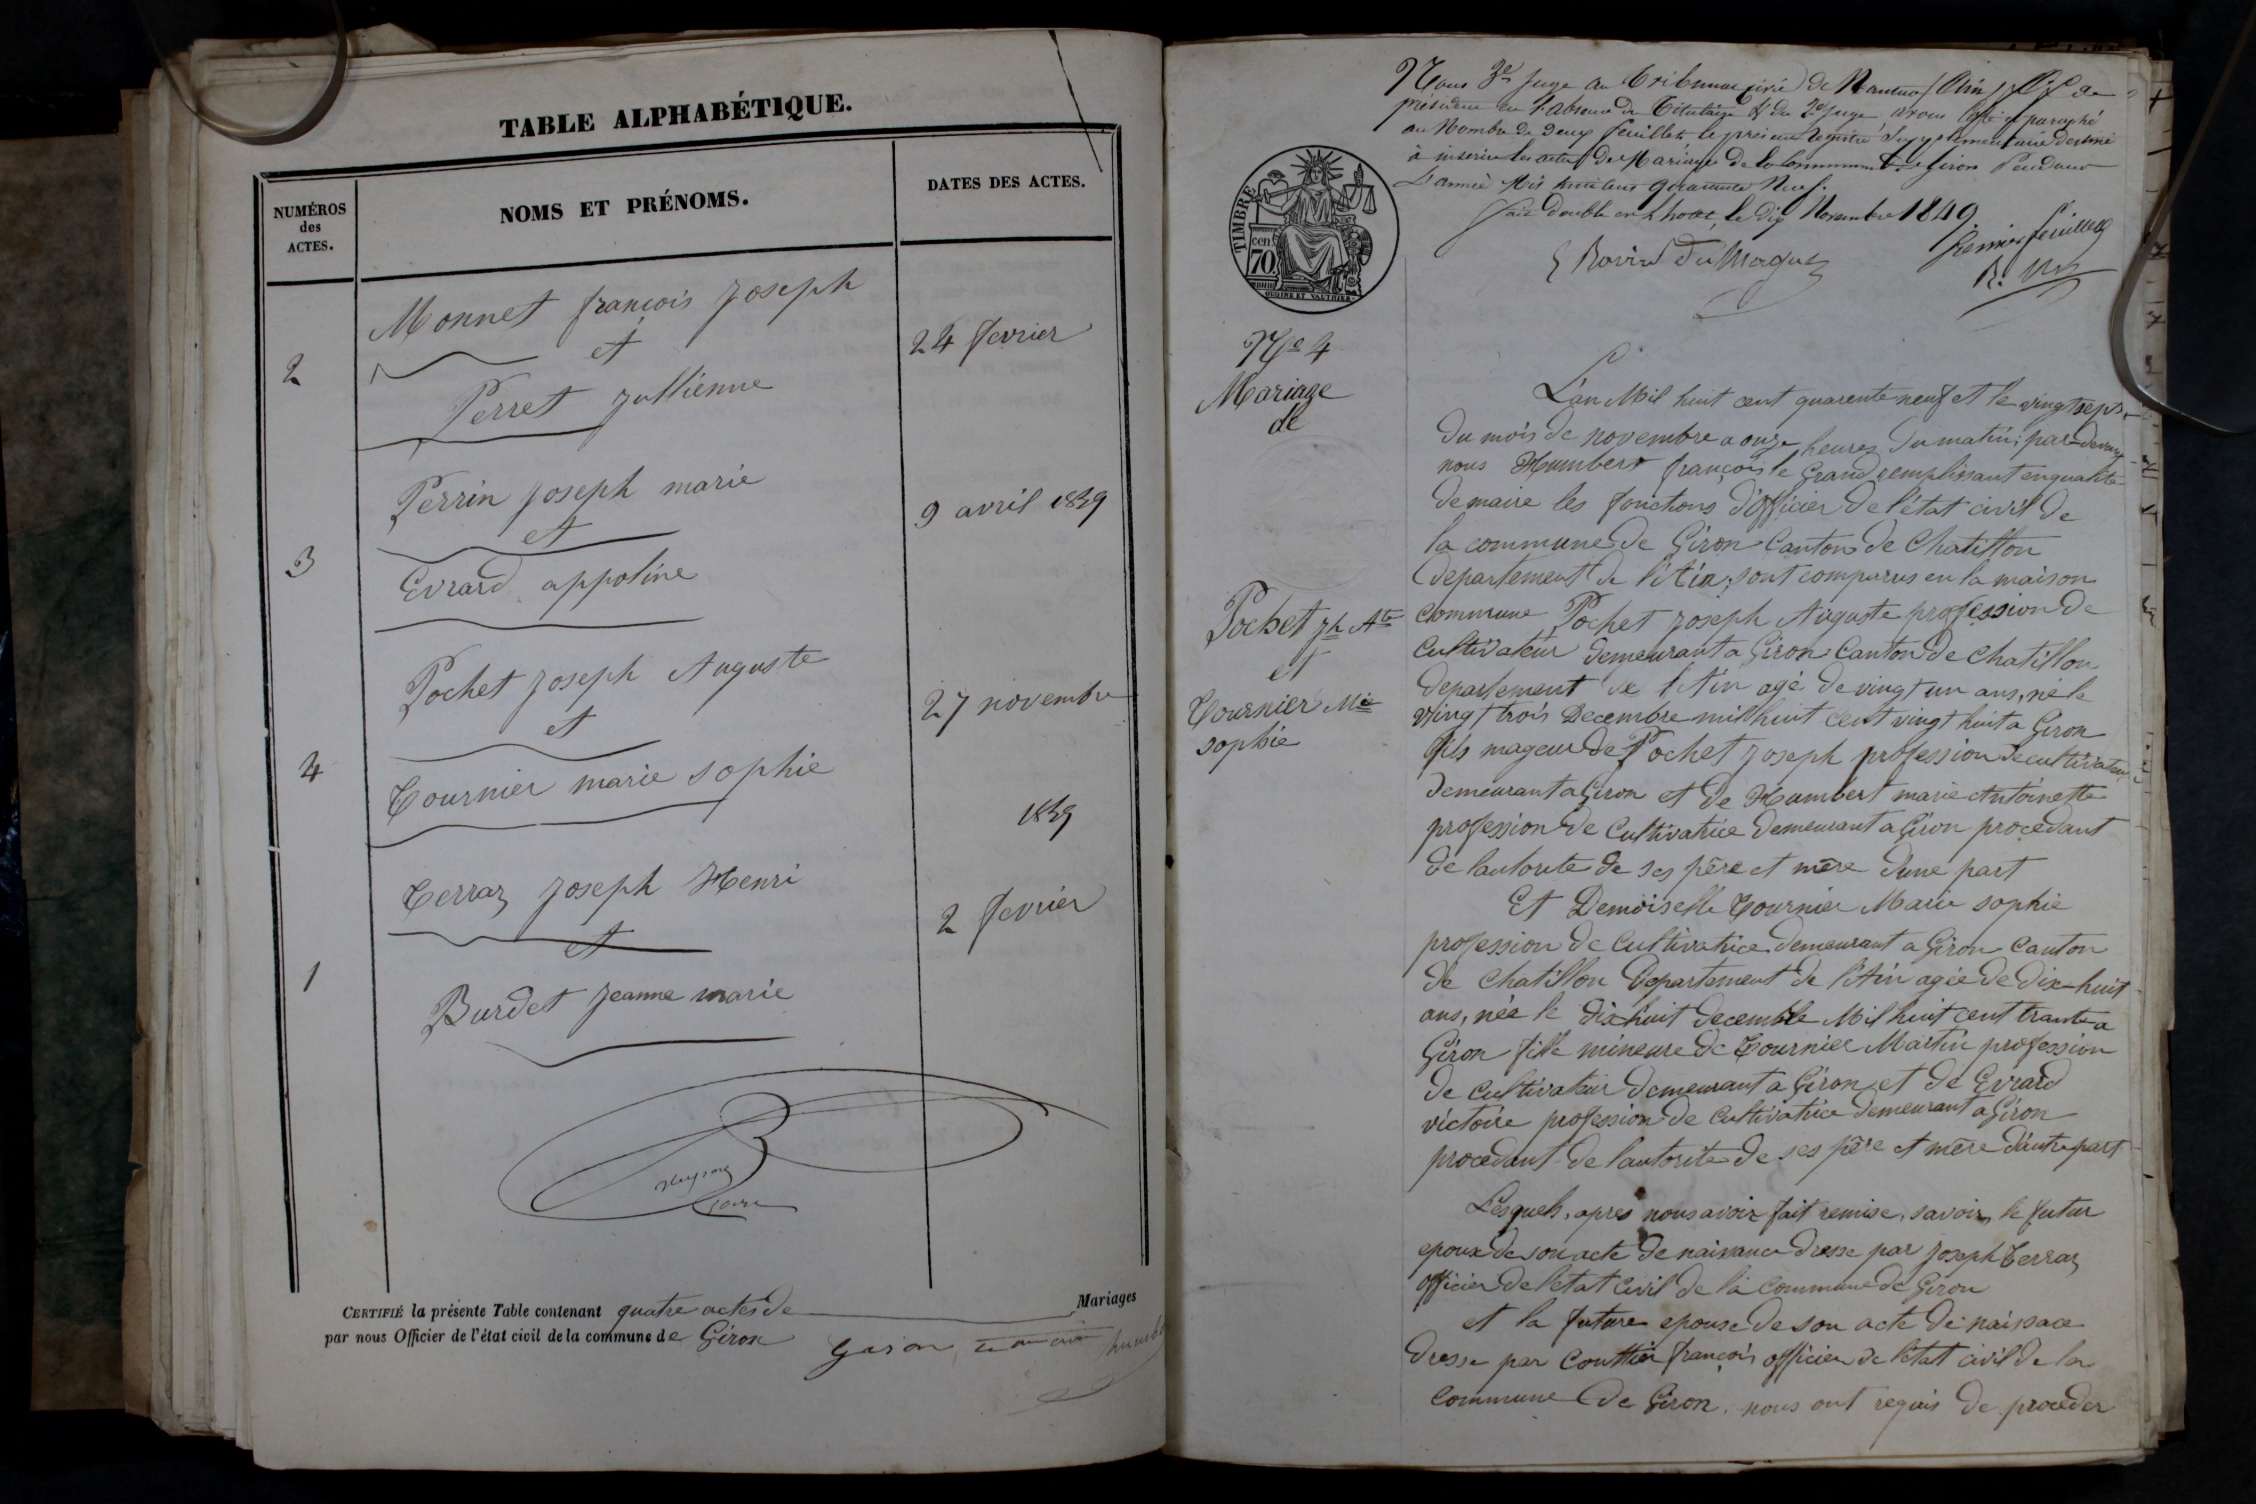 TABLE ALPHABÉTIQUE.
NUMÉROS
des
ACTES.
NOMS ET PRÉNOMS.
DATES DES ACTES.
2
Monnet françois joseph
et
Perret jullienne
24 fevrier
3
Perrin joseph marie
et
Evrard appoline
9 avril 1849
4
Pochet joseph Auguste
et
Tournier marie sophie
27 novembre
1849
1
Terraz joseph Henri
et
Burdet jeanne marie
2 fevrier
CERTIFIÉ la présente Table contenant quatre actes de Mariages
par nous Officier de l'état civil de la commune de Giron
Nous 3e juge au Tribunal civil de Nantua (Ain) de
président en l'absence du Titulaire & du 2e juge avons coté et paraphé
au Nombre de deux feuillets le présent Registre Supplémentaire destiné
à inscrire les actes de Mariages de la Commune de Giron Pendant
L'année Mil huit cent quarante Neuf.
fait double en L'hotel, le dix Novembre 1849.
Premier feuillet
TIMBRE
cen
70
No 4
Mariage
de
Pochet jh Ate
et
Tournier Mie
sophie
L'an Mil huit cent quarente neuf et le vingt sept
du mois de novembre a onze heures du matin; par devant
nous Humbert françois le Grand remplissant en qualité
de maire les fonctions d'Officier de l'état civil de
la commune de Giron Canton de Chatillon
departement de l'Ain, sont comparus en la maison
commune Pochet joseph Auguste profession de
Cultivateur demeurant a Giron Canton de chatillon
departement de l'Ain agé de vingt un ans, né le
vingt trois Decembre mil huit cent vingt huit a Giron
fils mageur de Pochet joseph profession de cultivateur
demeurant a Giron et de Humbert marie Antoinette
profession de Cultivatrice demeurant a Giron procedant
de lautorite de ses père et mère d'une part
Et Demoiselle Tournier Marie sophie
profession de Cultivatrice demeurant a Giron Canton
de Chatillon Departement de l'Ain agée de dix-huit
ans, née le dix huit decembre Mil huit cent trante a
Giron fille mineure de Tournier Martin profession
de Cultivateur demeurant a Giron et de Evrard
victoire profession de Cultivatrice demeurant a Giron
procedant de l'autorité de ses père et mère d'autre part
Lesquels, apres nous avoir fait remise, savoir, le futur
epoux de son acte de naissance dresse par joseph Terraz
officier de l'etat civil de la commune de Giron
et la future epouse de son acte de naissace
dresse par Couttier françois officier de l'etat civil de la
Commune de Giron, nous ont requis de proceder